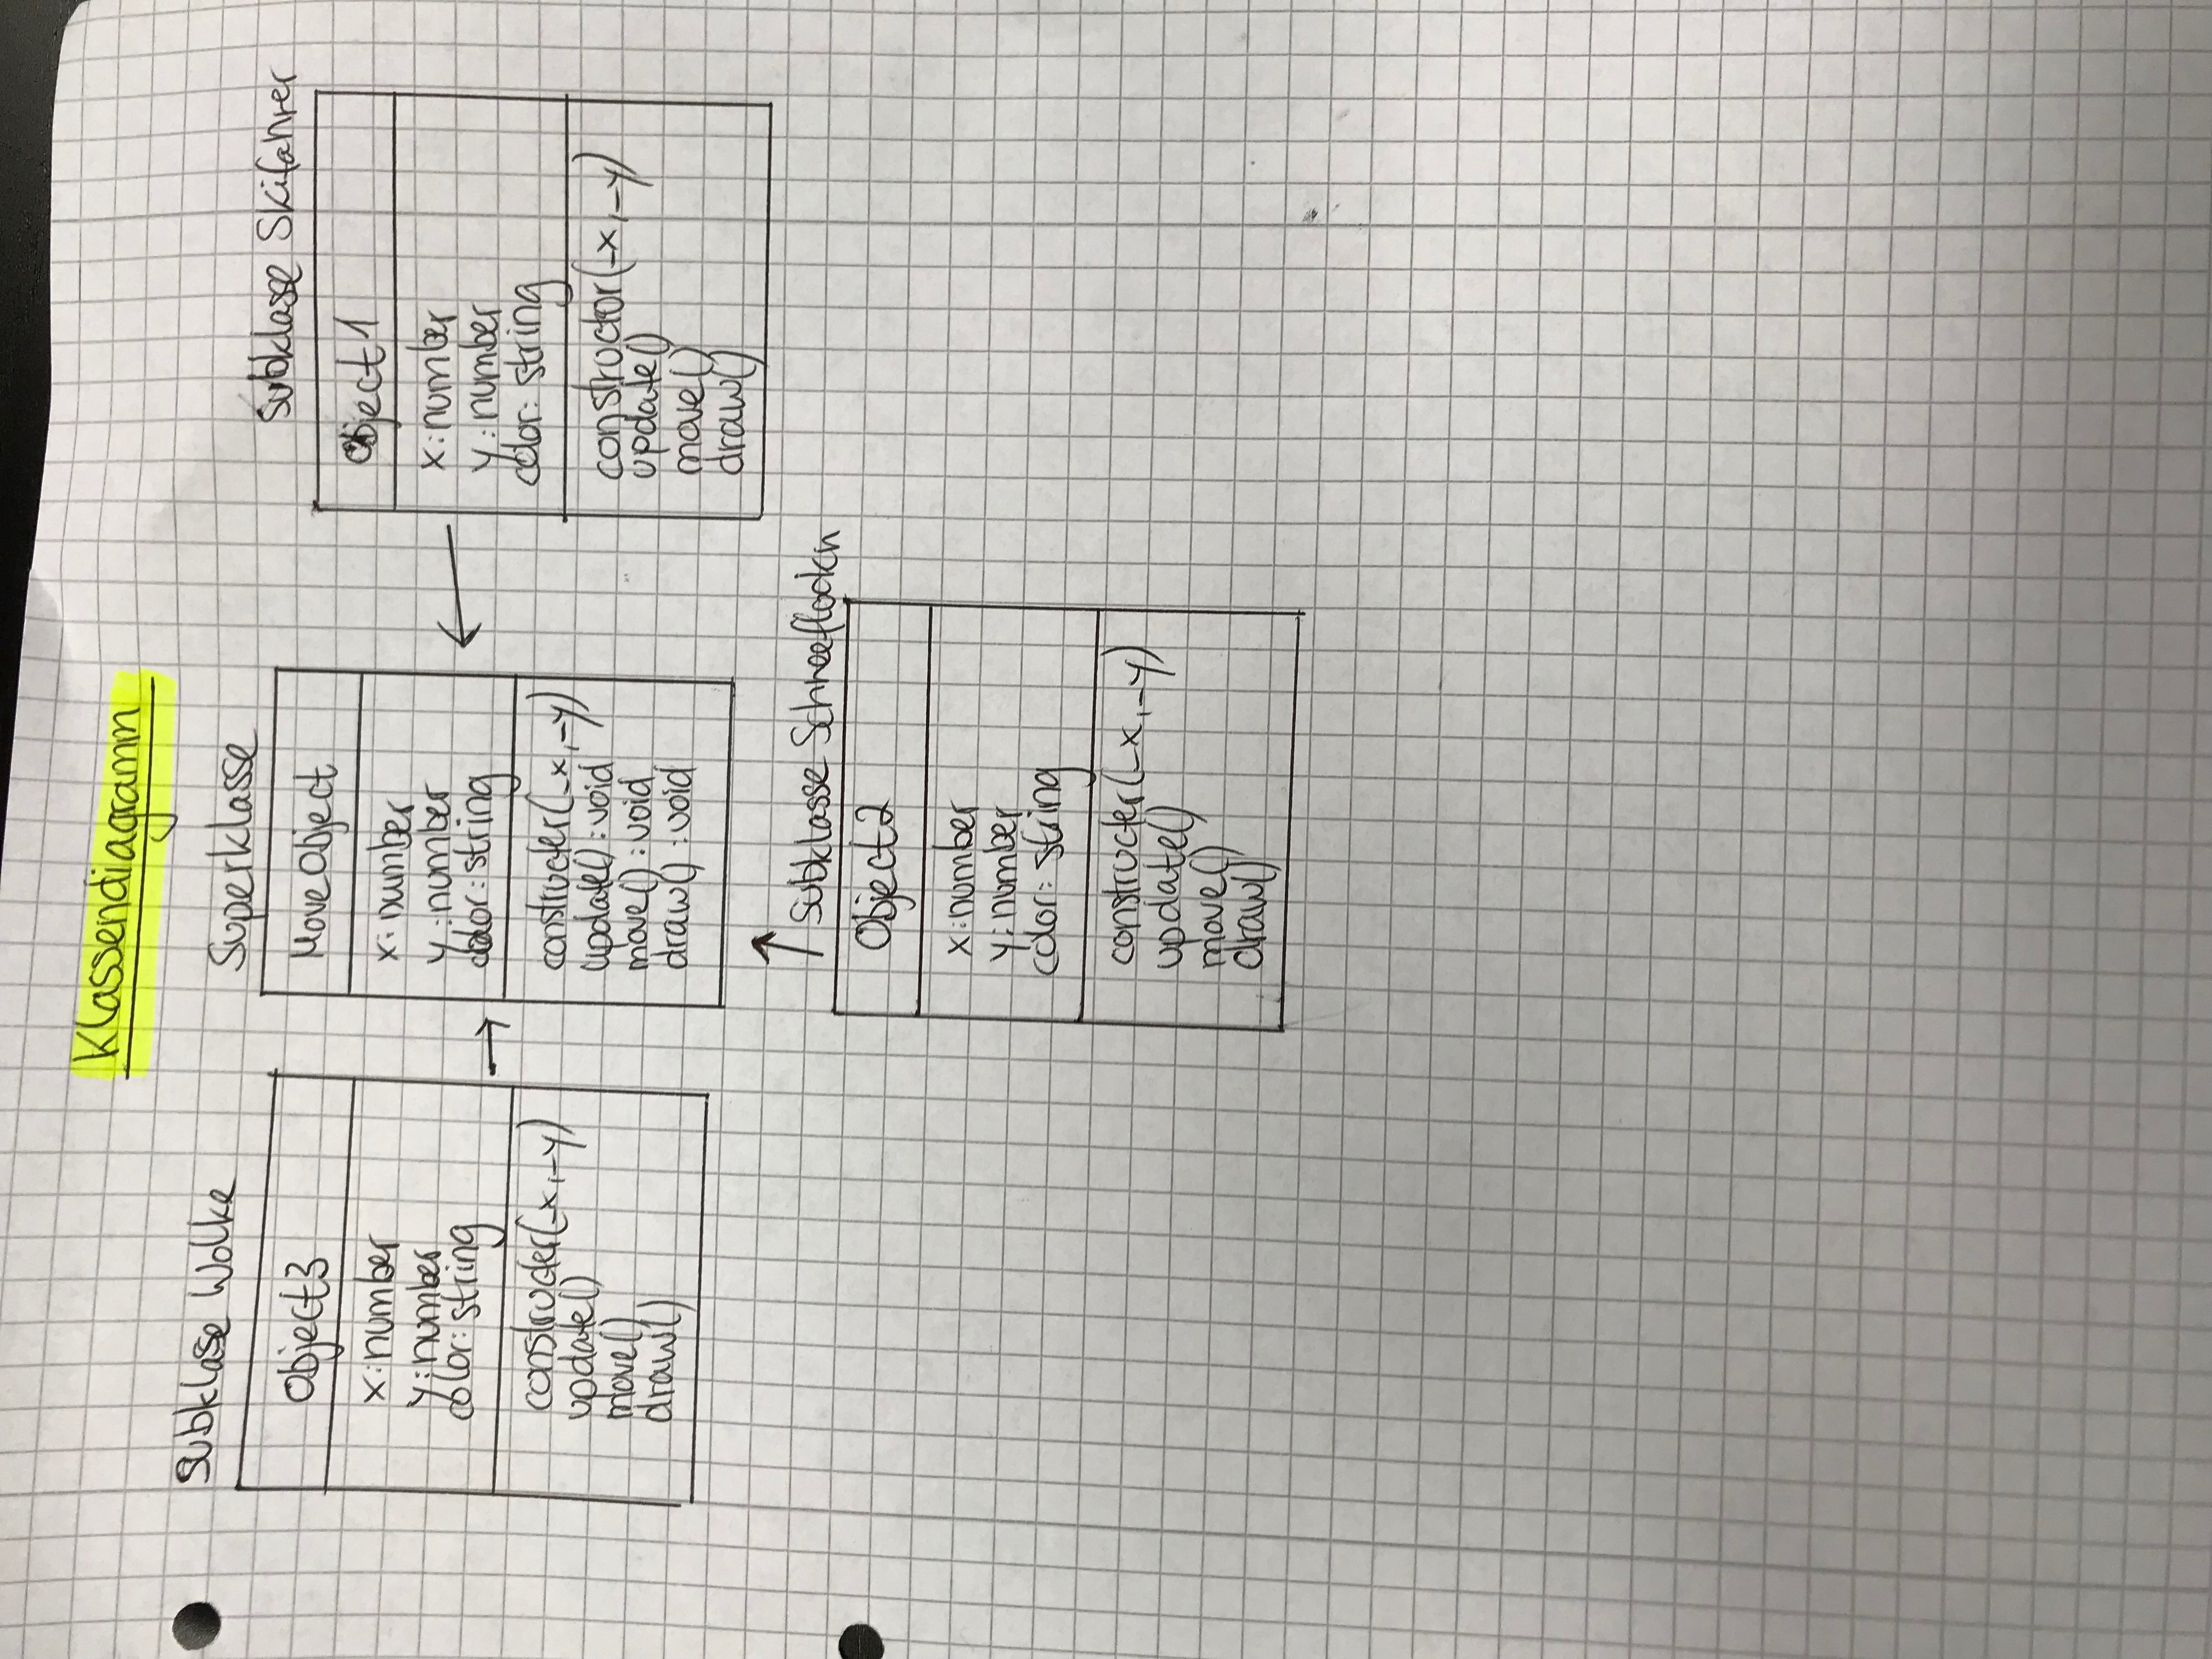 Klassendiagramm
Subklasse Wolke
Object3
x:number
y:number
color:string
constructer(_x,_y)
update()
move()
draw()
Superklasse
MoveObject
x:number
y:number
color:string
constructer(_x,_y)
update():void
move():void
draw():void
Subklasse Skifahrer
Object1
x:number
y:number
color:string
constructor(_x,_y)
update()
move()
draw()
Subklasse Schneeflockn
Object2
x:number
y:number
color:string
constructer(_x,_y)
update()
move()
draw()